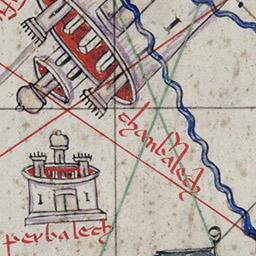 chambalech
perbalech